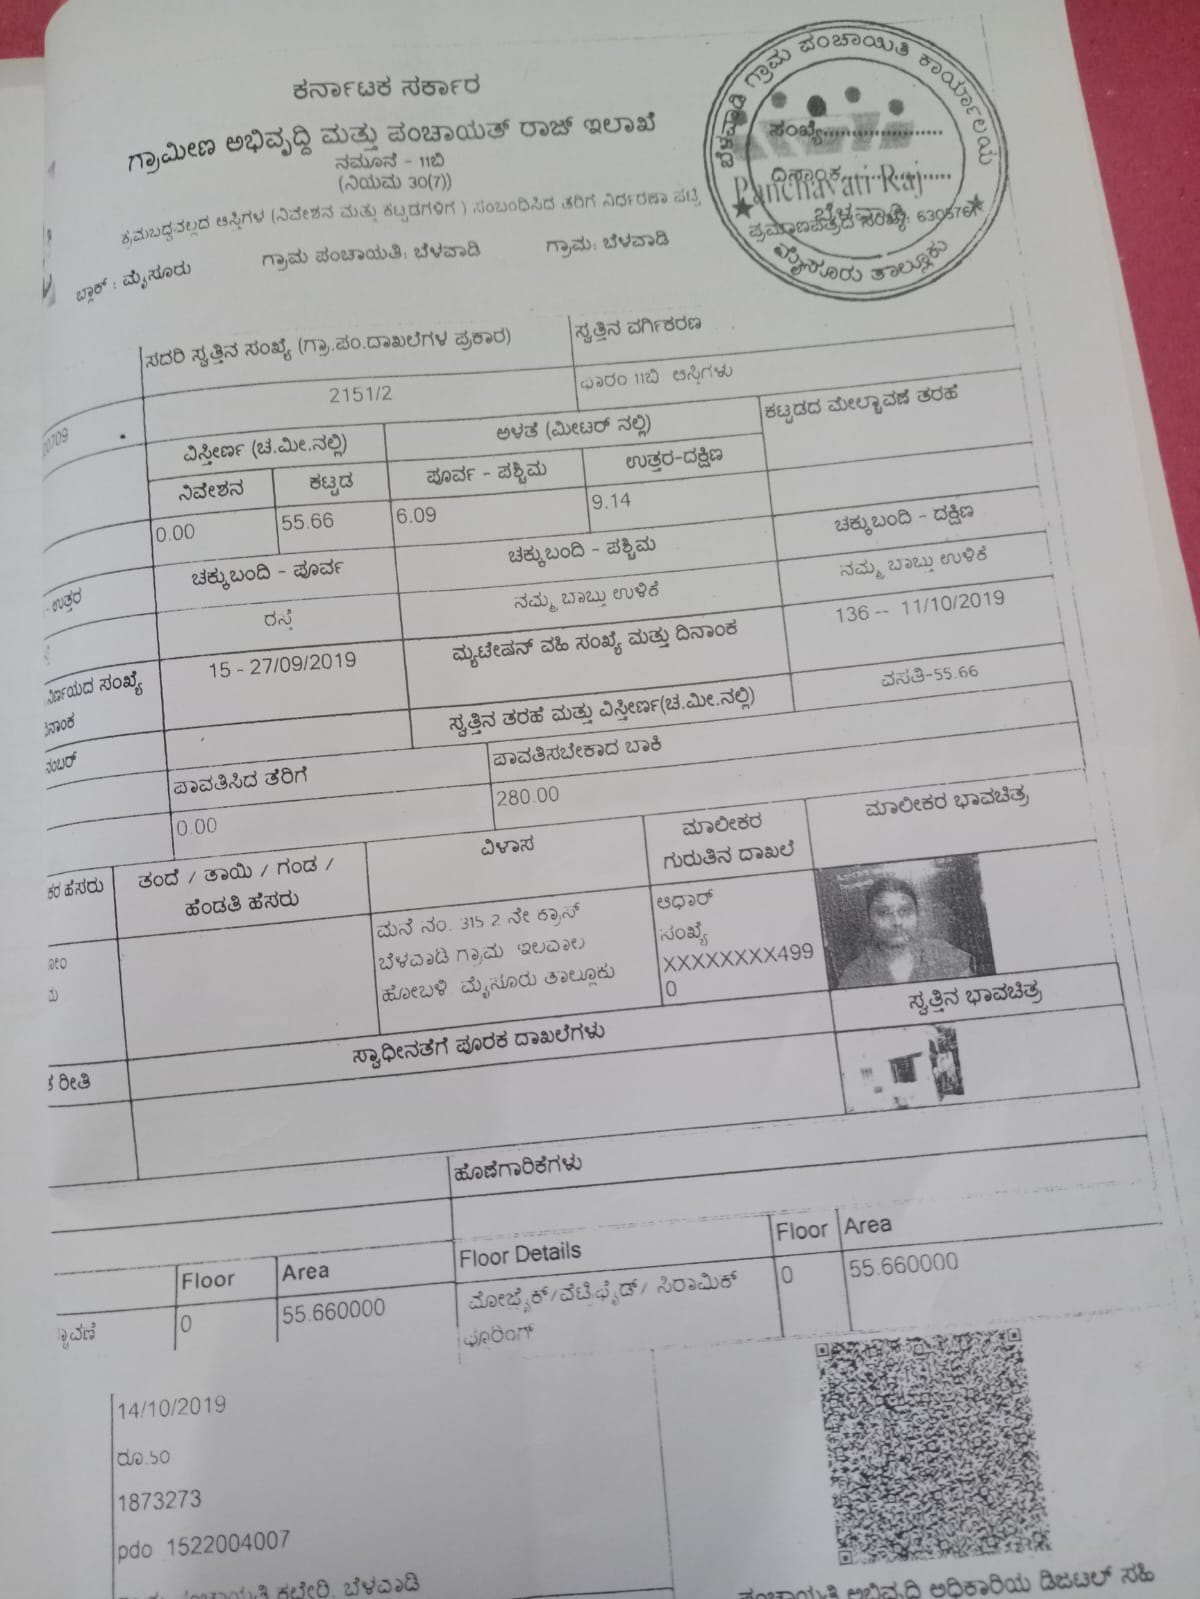 ಕರ್ನಾಟಕ ಸರ್ಕಾರ
ಗ್ರಾಮೀಣ ಅಭಿವೃದ್ಧಿ ಮತ್ತು ಪಂಚಾಯತ್ ರಾಜ್ ಇಲಾಖೆ
ನಮೂನೆ - 11ಬಿ
(ನಿಯಮ 30(7))
ಕ್ರಮಬದ್ಧವಲ್ಲದ ಆಸ್ತಿಗಳ (ನಿವೇಶನ ಮತ್ತು ಕಟ್ಟಡಗಳಿಗೆ ) ಸಂಬಂಧಿಸಿದ ತೆರಿಗೆ ನಿರ್ಧರಣಾ ಪಟ್ಟಿ
ಬ್ಲಾಕ್ : ಮೈಸೂರು ಗ್ರಾಮ ಪಂಚಾಯತಿ: ಬೆಳವಾಡಿ ಗ್ರಾಮ: ಬೆಳವಾಡಿ
ಬೆಳವಾಡಿ ಗ್ರಾಮ ಪಂಚಾಯಿತಿ ಕಾರ್ಯಾಲಯ
ಸಂಖ್ಯೆ......................
ದಿನಾಂಕ....................
Panchayati Raj
ಬೆಳವಾಡಿ
ಪ್ರಮಾಣಪತ್ರದ ಸಂಖ್ಯೆ: 6305761
ಮೈಸೂರು ತಾಲ್ಲೂಕು
ಸದರಿ ಸ್ವತ್ತಿನ ಸಂಖ್ಯೆ (ಗ್ರಾ.ಪಂ.ದಾಖಲೆಗಳ ಪ್ರಕಾರ) ಸ್ವತ್ತಿನ ವರ್ಗಿಕರಣ
00709 2151/2 ಫಾರಂ 11ಬಿ ಆಸ್ತಿಗಳು
ವಿಸ್ತೀರ್ಣ (ಚ.ಮೀ.ನಲ್ಲಿ) ಅಳತೆ (ಮೀಟರ್ ನಲ್ಲಿ) ಕಟ್ಟಡದ ಮೇಲ್ಛಾವಣೆ ತರಹೆ
ನಿವೇಶನ ಕಟ್ಟಡ ಪೂರ್ವ - ಪಶ್ಚಿಮ ಉತ್ತರ-ದಕ್ಷಿಣ
0.00 55.66 6.09 9.14
- ಉತ್ತರ ಚಕ್ಕುಬಂದಿ - ಪೂರ್ವ ಚಕ್ಕುಬಂದಿ - ಪಶ್ಚಿಮ ಚಕ್ಕುಬಂದಿ - ದಕ್ಷಿಣ
ರಸ್ತೆ ನಮ್ಮ ಬಾಬ್ತು ಉಳಿಕೆ ನಮ್ಮ ಬಾಬ್ತು ಉಳಿಕೆ
ನಿರ್ಣಯದ ಸಂಖ್ಯೆ 15 - 27/09/2019 ಮ್ಯುಟೇಷನ್ ವಹಿ ಸಂಖ್ಯೆ ಮತ್ತು ದಿನಾಂಕ 136 -- 11/10/2019
ನಾಂಕ
ನಂಬರ್ ಸ್ವತ್ತಿನ ತರಹೆ ಮತ್ತು ವಿಸ್ತೀರ್ಣ(ಚ.ಮೀ.ನಲ್ಲಿ) ವಸತಿ-55.66
ಪಾವತಿಸಿದ ತೆರಿಗೆ ಪಾವತಿಸಬೇಕಾದ ಬಾಕಿ
0.00 280.00
ಕರ ಹೆಸರು ತಂದೆ / ತಾಯಿ / ಗಂಡ /
ಹೆಂಡತಿ ಹೆಸರು
ವಿಳಾಸ
ಮಾಲೀಕರ
ಗುರುತಿನ ದಾಖಲೆ
ಮಾಲೀಕರ ಭಾವಚಿತ್ರ
ಮನೆ ನಂ. 315 2 ನೇ ಕ್ರಾಸ್
ಬೆಳವಾಡಿ ಗ್ರಾಮ ಇಲವಾಲ
ಹೋಬಳಿ ಮೈಸೂರು ತಾಲ್ಲೂಕು
ಆಧಾರ್
ಸಂಖ್ಯೆ
XXXXXXXX499
0
ಸ್ವತ್ತಿನ ಭಾವಚಿತ್ರ
ಕ ರೀತಿ ಸ್ವಾಧೀನತೆಗೆ ಪೂರಕ ದಾಖಲೆಗಳು
ಹೊಣೆಗಾರಿಕೆಗಳು
Floor Area Floor Details Floor Area
ಛಾವಣಿ 0 55.660000 ಮೋಜೈಕ್/ವೆಟ್ರಿಫೈಡ್/ ಸಿರಾಮಿಕ್ 0 55.660000
ಫ್ಲೂರಿಂಗ್
14/10/2019
ರೂ.50
1873273
pdo 1522004007
ಪಂಚಾಯತಿ ಕಛೇರಿ, ಬೆಳವಾಡಿ
ಪಂಚಾಯತಿ ಅಭಿವೃದ್ಧಿ ಅಧಿಕಾರಿಯ ಡಿಜಿಟಲ್ ಸಹಿ